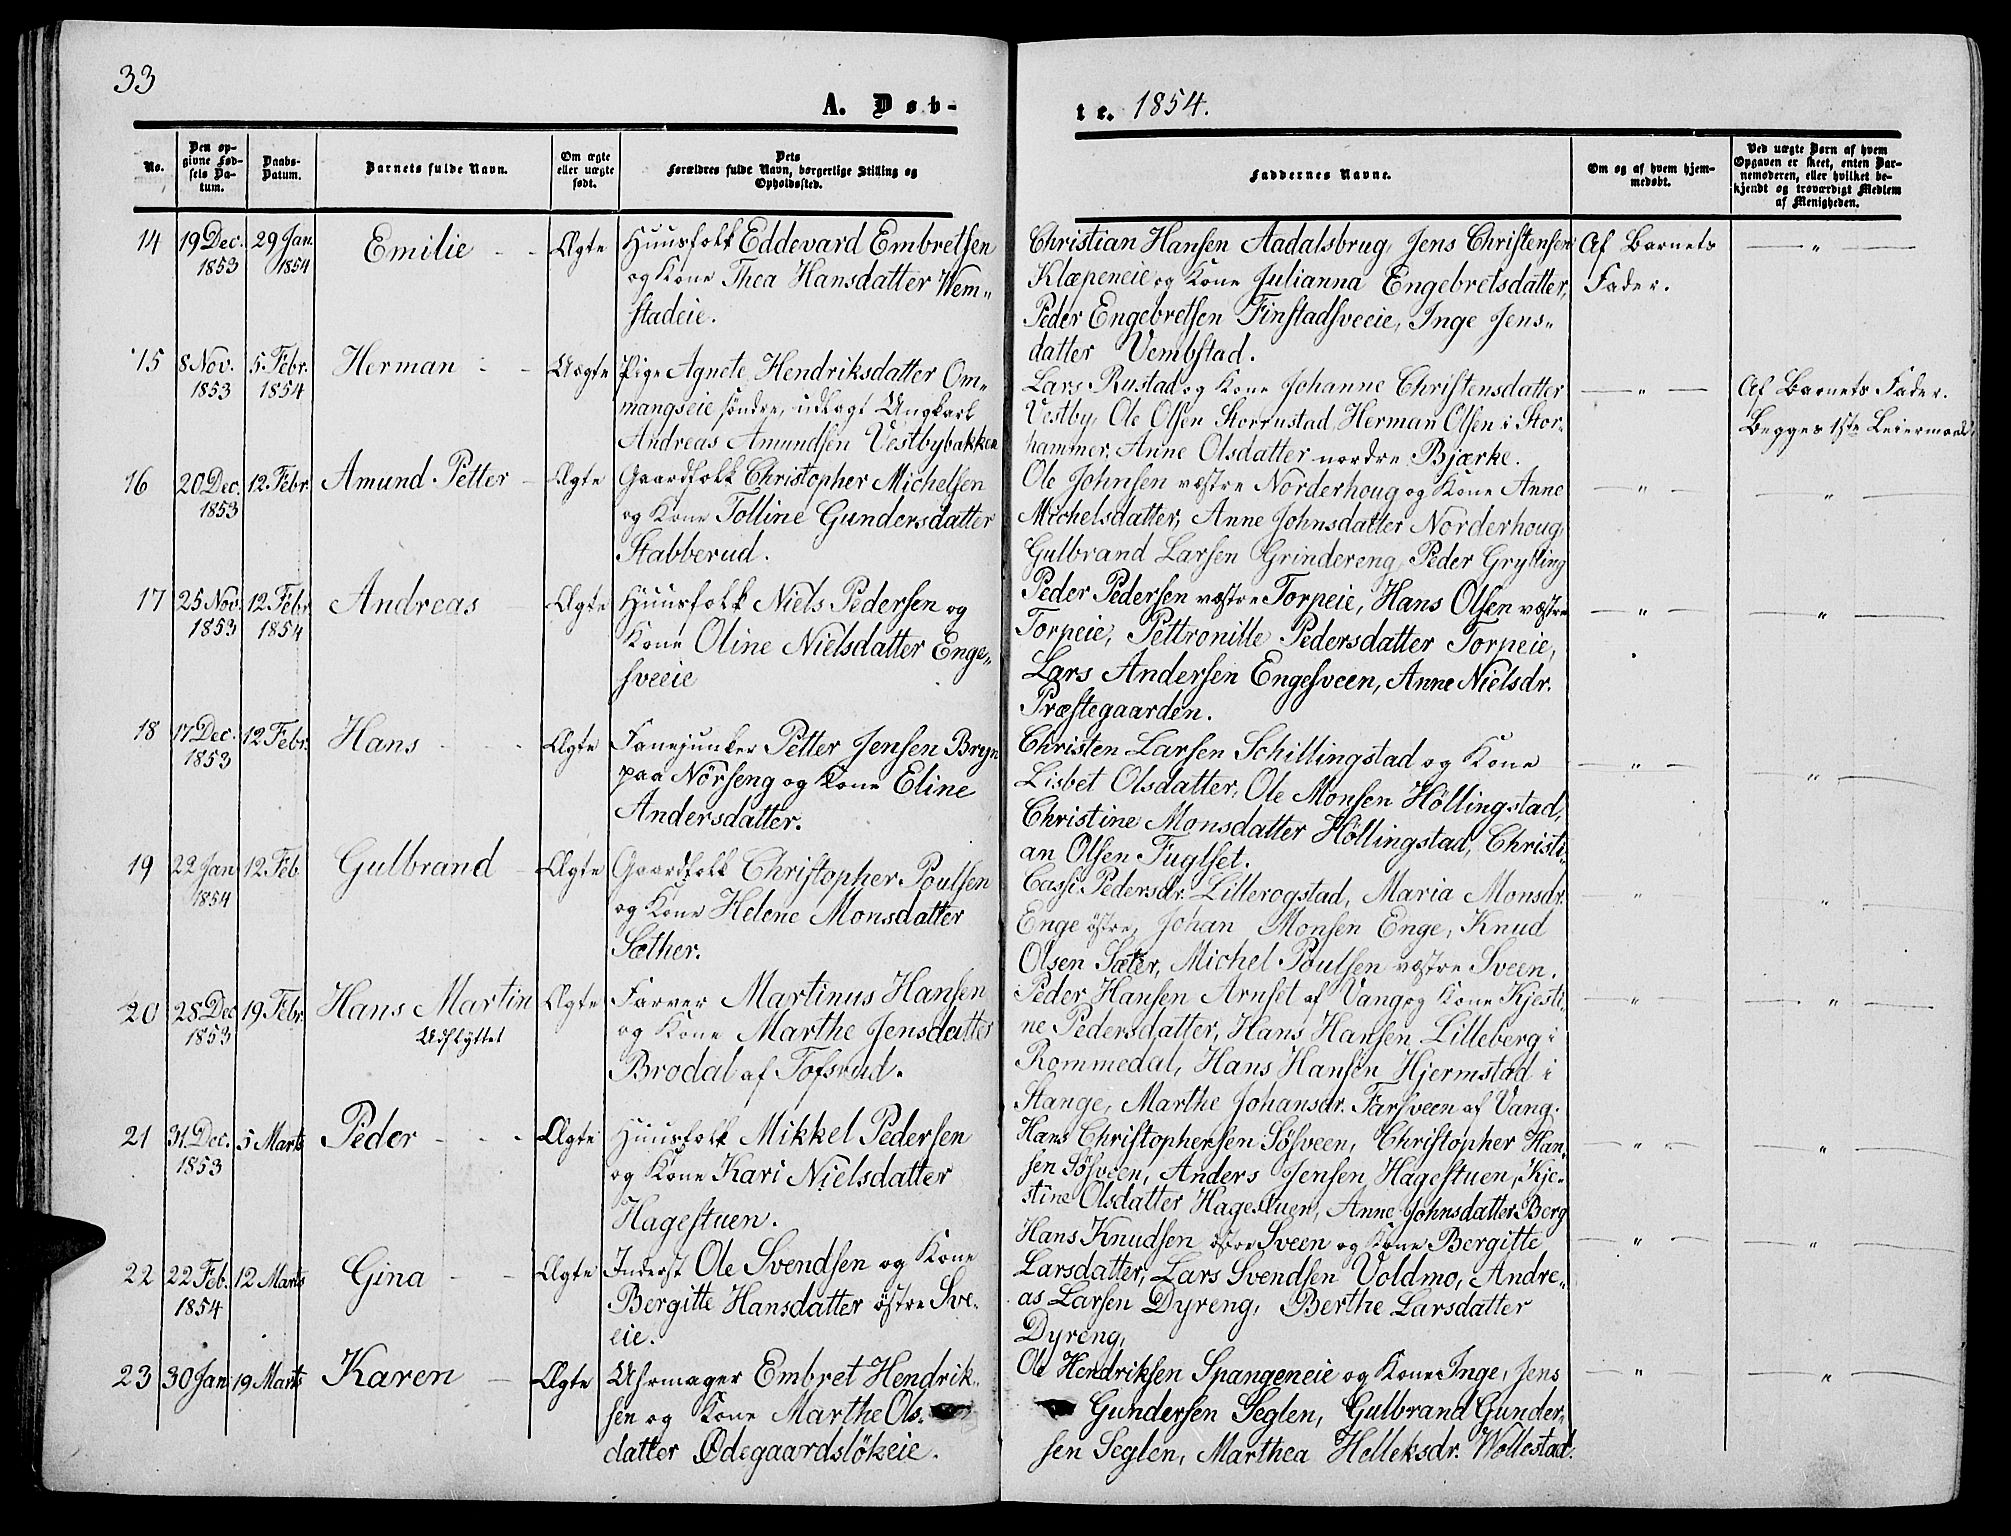 33
A. Døb-
te. 1854.
No.
Den op-
givne Fød-
sels Da-
tum.
Daabs-
Datum.
Barnets fulde Navn.
Om ægte
eller uægte
født.
Dets
Forældres fulde Navn, borgerlige Stilling og
Opholdssted.
Faddernes Navne.
Om og af hvem hjem-
medøbt.
Ved uægte Børn af hvem
Opgaven er skeet, enten Bar-
nemoderen, eller hvilket be-
kjendt og troværdigt Medlem
af Menigheden.
14 19 Dec. 29 Jan. Emilie - - Ægte Huusfolk Eddevard Embretsen
1853 1854 og Kone Thea Hansdatter Wem„
stadeie.
Christian Hansen Aadalsbrug, Jens Christensen Af Barnets — „ —
Klæpeneie og Kone Julianna Engebretsdatter, Fader.
Peder Engebretsen Finstadsveeie, Inge Jens„
datter Vembstad.
15 8 Nov. 5 Febr. Herman - - Uægte Pige Agnete Hendriksdatter Om„
1853 1854 mangseie søndre, udlagt Ungkarl
Andreas Amundsen Vestbybakken
Lars Rustad og Kone Johanne Christensdatter — „ — Af Barnets Fader.
Vestby, Ole Olsen Storrustad, Herman Olsen i Stor- Begges 1ste Leiermaal.
hammer, Anne Olsdatter nordre Bjærke.
16 20 Dec. 12 Febr. Amund Petter - Ægte Gaardfolk Christopher Michelsen
1853 og Kone Tolline Gundersdatter
Stabberud.
Ole Johnsen væstre Norderhoug og Kone Anne — „ — — „ —
Michelsdatter, Anne Johnsdatter Norderhoug
Gulbrand Larsen Grindereng, Peder Grylling
17 25 Nov. 12 Febr. Andreas - Ægte Huusfolk Niels Pedersen og
1853 1854 Kone Oline Nielsdatter Enge„
sveeie
Peder Pedersen væstre Torpeie, Hans Olsen væstre — „ — — „ —
Torpeie, Pettronille Pedersdatter Torpeie,
Lars Andersen Engesveen, Anne Nielsdr.
Præstegaarden.
18 17 Dec. 12 Febr. Hans - - - Ægte Fanejunker Petter Jensen Bryn
1853 paa Nørseng og Kone Eline
Andersdatter.
Christen Larsen Schillingstad og Kone — „ — — „ —
Lisbet Olsdatter, Ole Monsen Höllingstad,
Christine Monsdatter Höllingstad, Christi-
an Olsen Fuglset.
19 22 Jan 12 Feb Gulbrand - Ægte Gaardfolk Christopher Poulsen
1854 og Kone Helene Monsdatter
Sæther.
Cassi Pedersdr. Lillerogstad, Maria Monsdr. „ — „ —
Enge östre, Johan Monsen Enge, Knud
Olsen Sæter, Michel Poulsen væstre Sveen.
20 28 Dec 19 Febr. Hans Martin Ægte Farver Martinus Hansen
1853 Udflyttet og Kone Marthe Jensdatter
Brodal af Tofsrud.
Peder Hansen Arnset af Vang og Kone Kjesti- — „ — — „ —
ne Pedersdatter, Hans Hansen Lilleberg i
Rommedal, Hans Hansen Hjermstad i
Stange, Marthe Johansdr. Farsveen af Vang.
21 31. Dec. 5 Marts Peder - - - Ægte Huusfolk Mikkel Pedersen
1853 og Kone Kari Nielsdatter
Hagestuen.
Hans Christophersen Sösveen, Christopher Han- — „ — — „ —
sen Sösveen, Anders Jensen Hagestuen, Kje-
stine Olsdatter Hagestuen, Anne Johnsdatter Berg
22 22 Feb. 12 Marts Gina - - Ægte Inderst Ole Svendsen og Kone
1854 Bergitte Hansdatter östre Sve-
eie.
Hans Knudsen östre Sveen og Kone Bergitte — „ — — „ —
Larsdatter, Lars Svendsen Voldmo, Andre„
as Larsen Dyreng, Berthe Larsdatter
Dyreng,
23 30 Jan 19 Marts Karen - Ægte Uhrmager Embret Hendrik-
sen og Kone Marthe Ols-
datter Ødegaardslökeie.
Ole Hendriksen Spangeneie og Kone Inge, Jens — „ — — „ —
Gundersen Seglen, Gulbrand Gunder-
sen Seglen, Marthea Helleksdr. Wollestad.